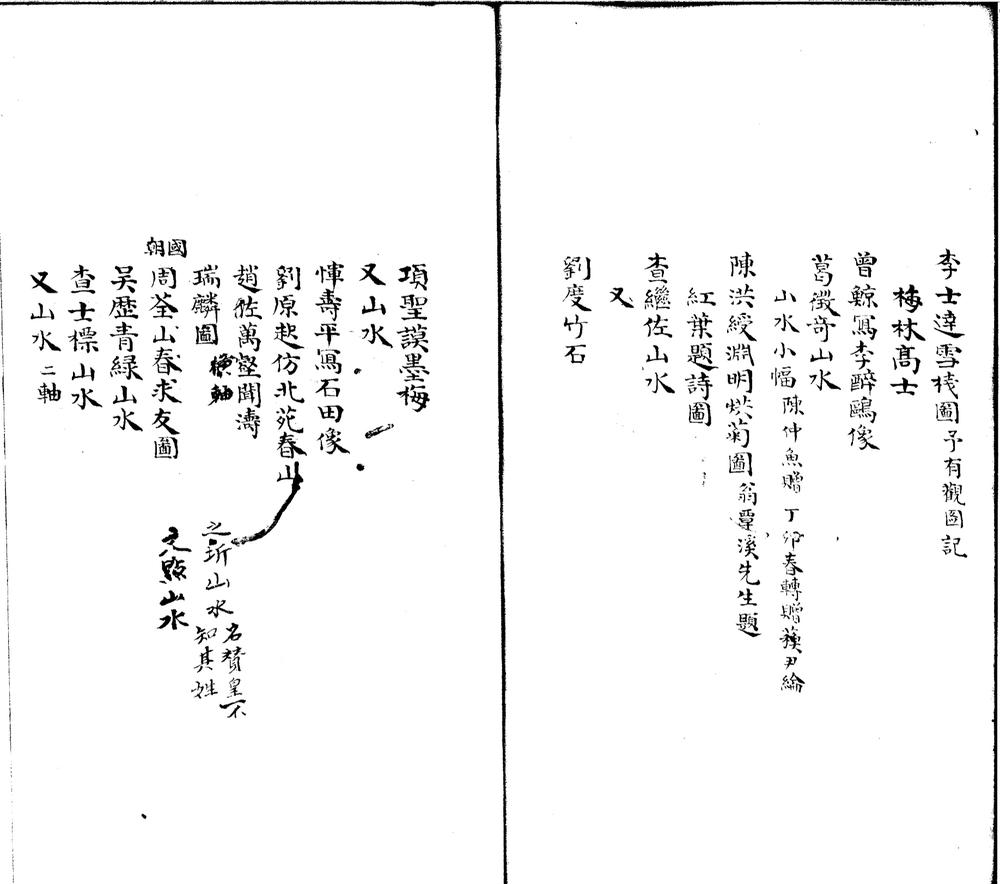 李士達雪棧圖 予有觀圖記
梅林高士
曾鯨寫李醉鷗像
葛徵奇山水
山水小幅 陳仲魚贈 丁卯春轉贈蔣尹綸
陳洪綬淵明烘菊圖 翁覃溪先生題
紅葉題詩圖
查繼佐山水
又
劉度竹石
項聖謨墨梅
又山水
惲壽平寫石田像
劉原起仿北苑春山
趙左萬壑聞濤
瑞麟圖 橫軸
之圻山水 名贊皇不知其姓
文點山水
國朝
周荃山春求友圖
吴歷青緑山水
查士標山水
又山水 二軸